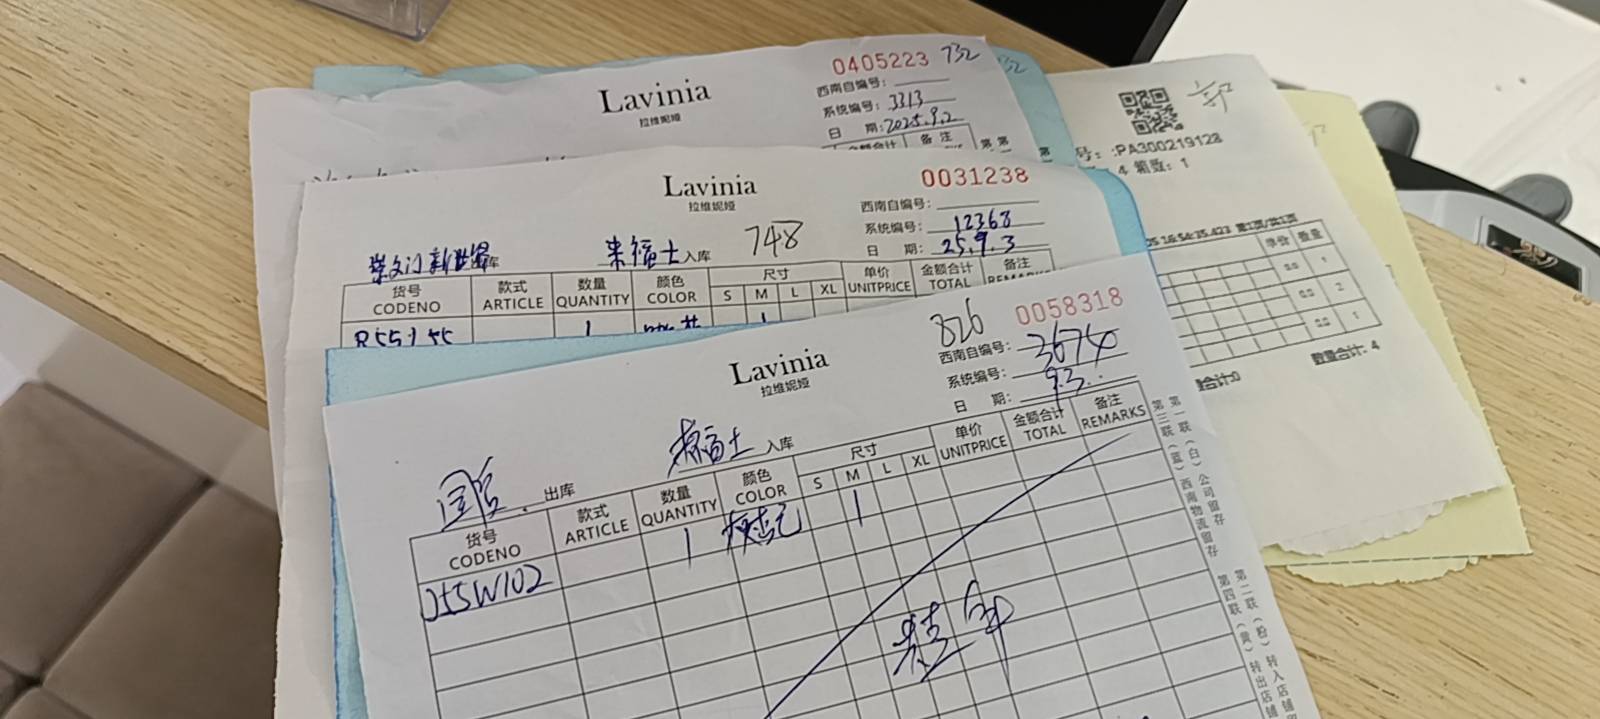 Lavinia
拉维妮娅
0405223 732
西南自编号:
系统编号: 3313
日 期: 2025.9.2
金额合计 备注
Lavinia
拉维妮娅
0031238
西南自编号:
系统编号: 12368
日 期: 25.9.3
崇文门新世界出库 朱福士入库 748
货号 款式 数量 颜色 尺寸 单价 金额合计 备注
CODENO ARTICLE QUANTITY COLOR S M L XL UNITPRICE TOTAL
1
Lavinia
拉维妮娅
826 0058318
西南自编号: 3674
系统编号: 9.3.
日 期:
出库 入库
货号 款式 数量 颜色 尺寸 单价 金额合计 备注
CODENO ARTICLE QUANTITY COLOR S M L XL UNITPRICE TOTAL REMARKS
1 1
第一联(白)公司留存
第三联(蓝)西南物流留存
第二联(粉)转入店铺
第四联(黄)转出店铺
:PA300219128
4 箱数: 1
16:54:35.423 第1页/共1页
单价 数量
0.0 1
0.0 2
0.0 1
数量合计: 4
合计:0